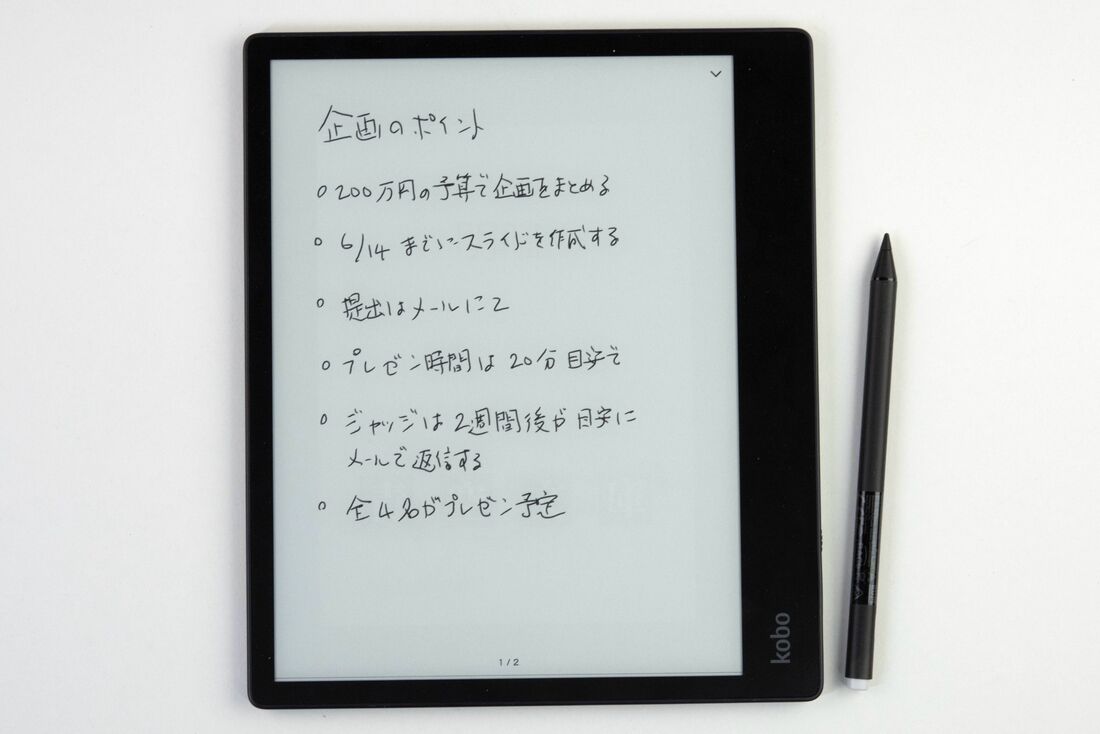 企画のポイント
○ 200万円の予算で企画をまとめる
○ 6/14 までにスライドを作成する
○ 提出はメールにて
○ プレゼン時間は 20分目安で
○ ジャッジは 2週間後が目安に
メールで返信する
○ 全4名がプレゼン予定
1 / 2
kobo